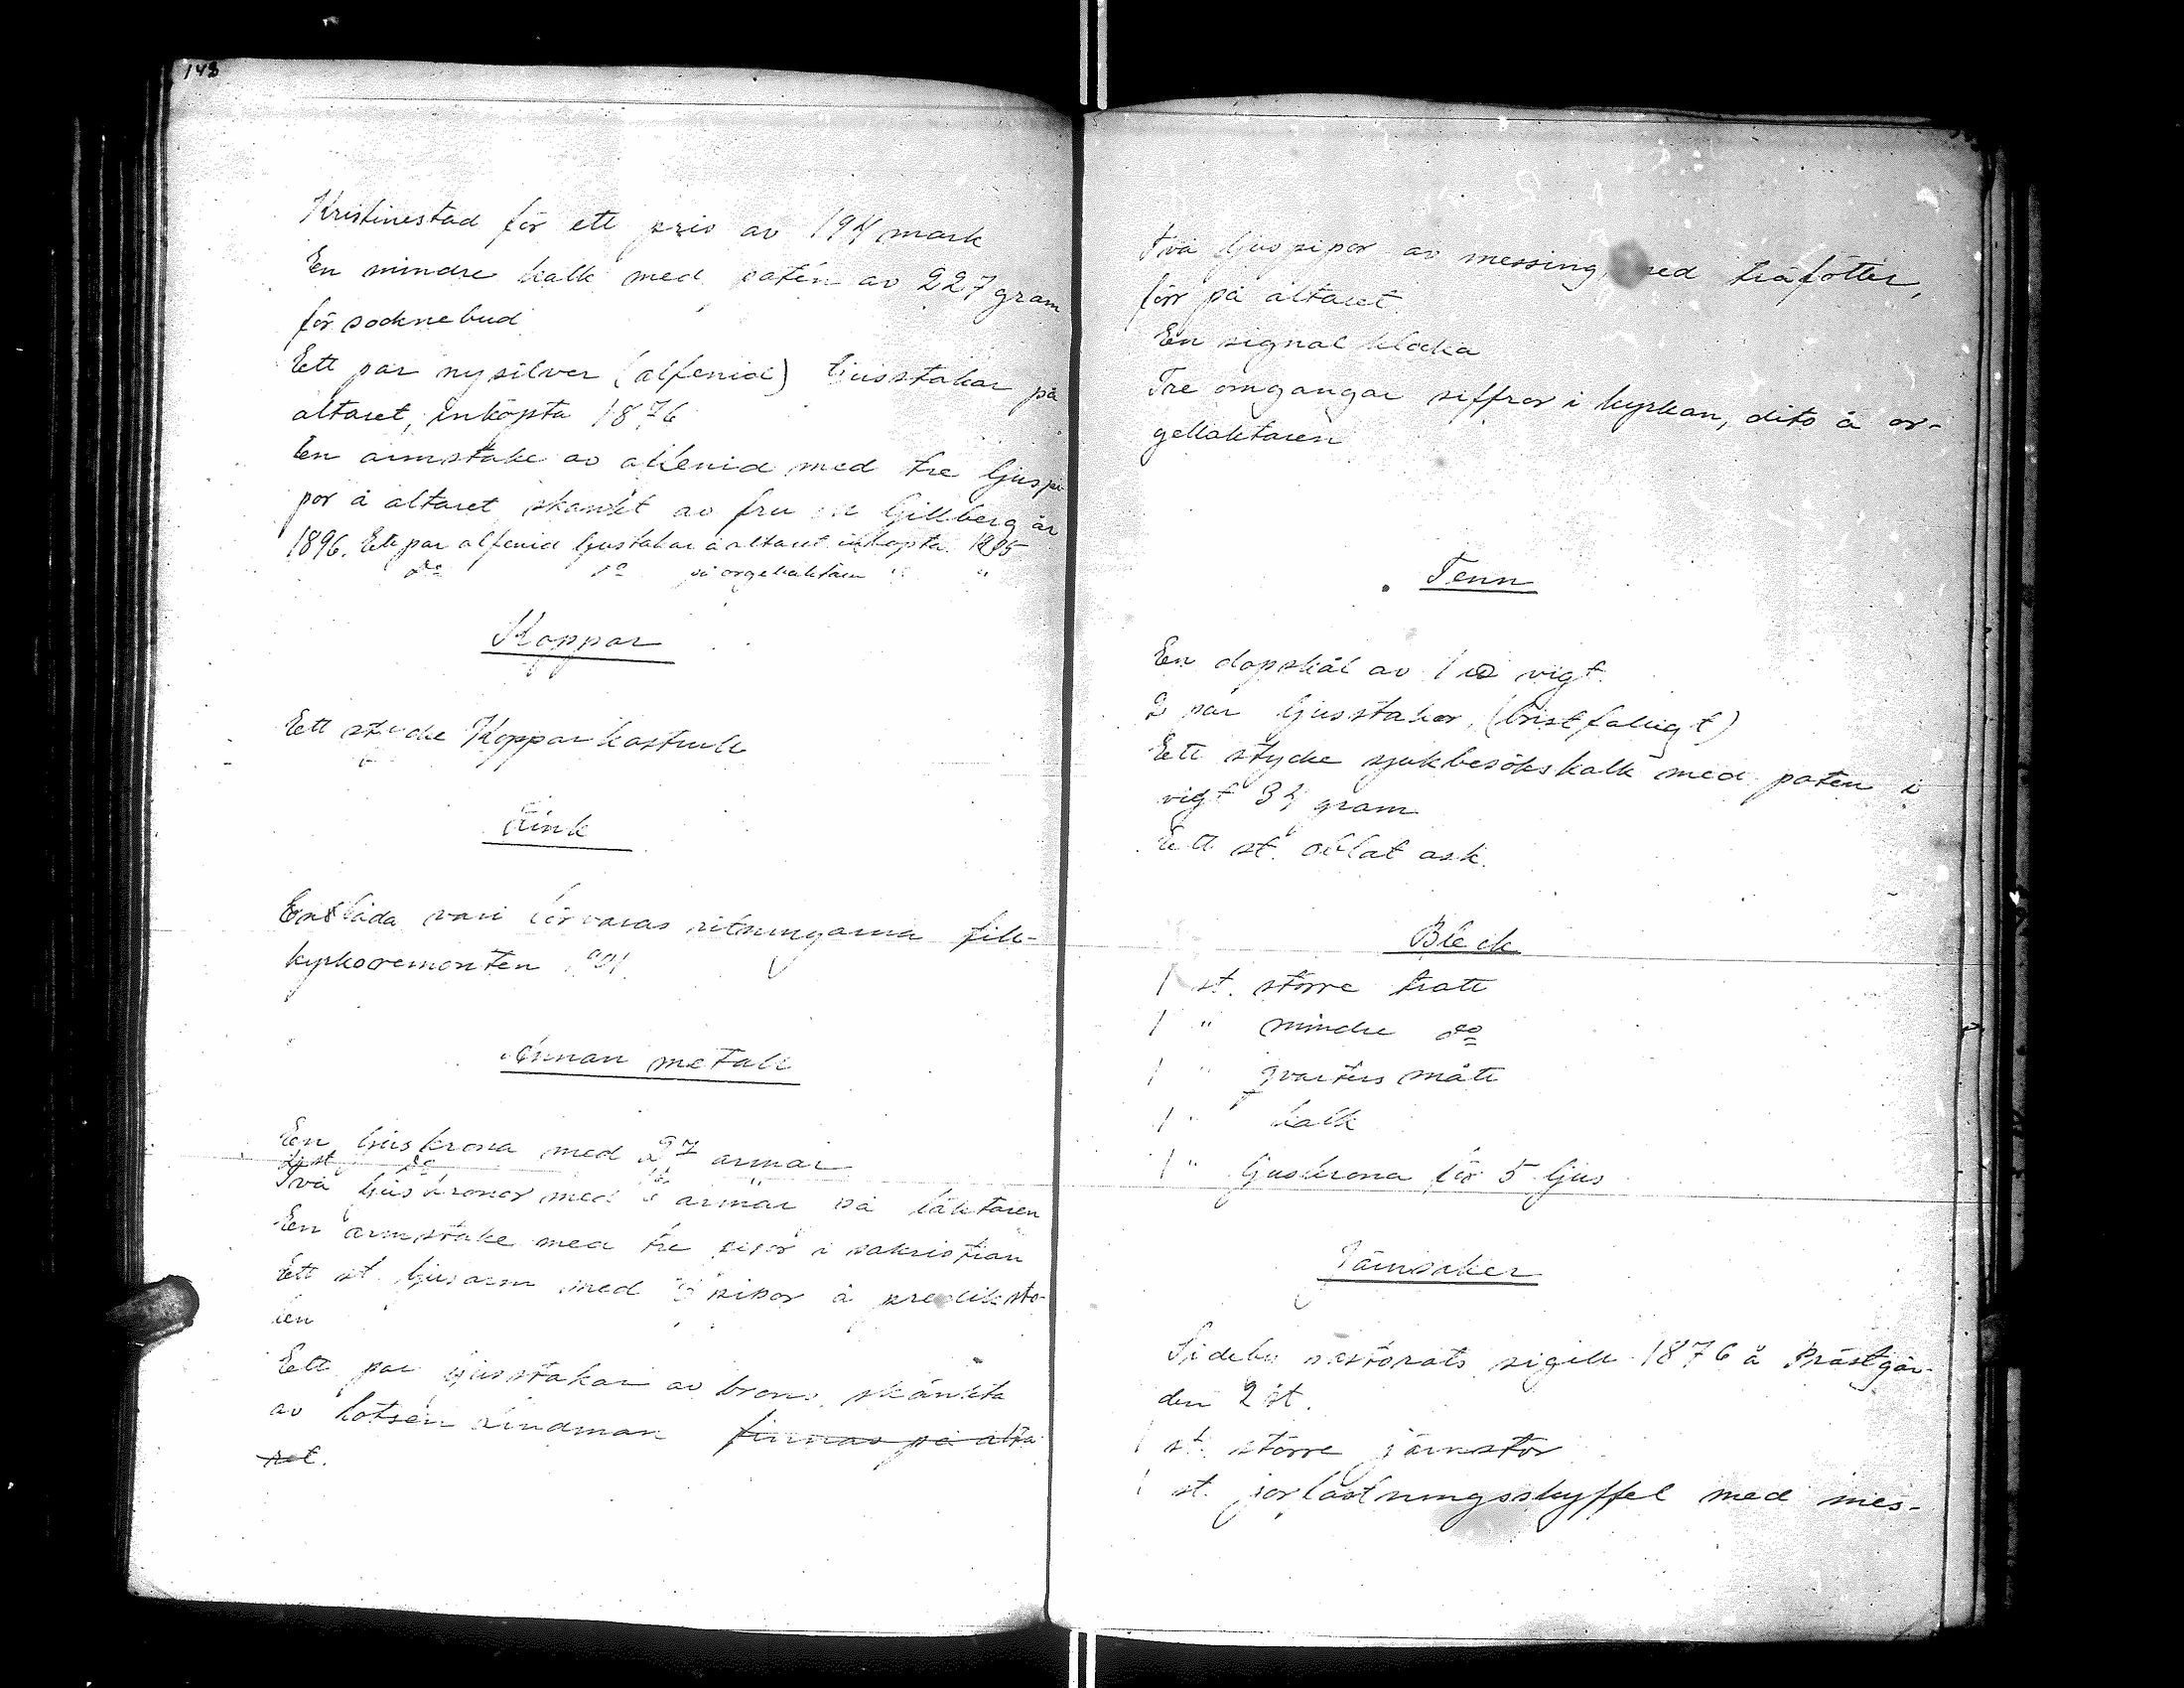 148
Kristinestad för ett pris av 194 mark
En mindre kalk med patén av 227 gram
för socknebud
Ett par nysilver (alfenid) ljusstakar på
altaret, inköpta 1876
En armstake av alfenid med tre ljuspi
por å altaret skänkt av fru Gillberg år
1896. Ett par alfenid ljustakar å altaret inköpta 1895
do do på orgelläktaren " "
Koppar
Ett stycke Kopparkastrull
Zink
En låda vari förvaras ritningarna till
kyrkoremonten
Annan metall
En ljuskrona med 27 armar
2 st do
Två ljuskronor med armar på läktaren
En armstake med tre pipor i sakristian
Ett st. ljusarm med pipor å prediksto-
len
Ett par ljusstakar av brons, skänkta
av lotsen Lindman finnas på alta
ret.
Två ljuspipor av messing, med träfötter,
förr på altaret.
En signal klocka
Tre omgangar siffror i kyrkan, dito å or-
gelläktaren
Tenn
En dopskål av 1 vigt.
2 par ljusstakar, (bristfälligt)
Ett stycke sjukbesökskalk med paten i
vigt gram
Ett st. oblat ask.
Bleck
1 st. större tratt
1 " mindre do
1 " qvarters mått
1 " kalk
1 " ljuskrona för 5 ljus
Järnsaker
Sideby pastorats sigill 1876 å Prästgår-
den 2 st.
1 st. större järnstör
1 st. jordfästningsskyffel med mes-